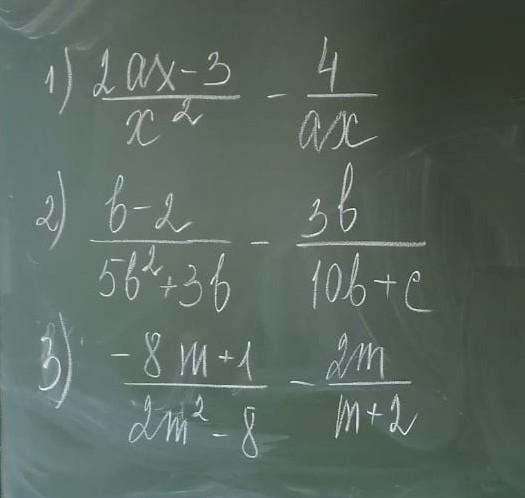 1) (2ax-3)/x² - 4/(ax)
2) (b-2)/(5b²+3b) - 3b/(10b+c)
3) (-8m+1)/(2m²-8) - 2m/(m+2)